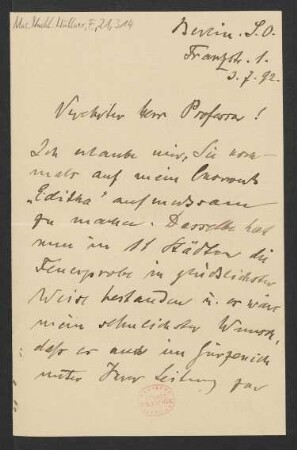 Mus. Nachl. Wüllner, F, 21,314
Berlin. S.O.
Franzstr. 1.
3.7.92.
Verehrter Herr Professor!
Ich erlaube mir, Sie noch-
mals auf mein Chorwerk
„Editha“ aufmerksam
zu machen. Dasselbe hat
nun in 11 Städten die
Feuerprobe in glücklichster
Weise bestanden u. es wäre
mein sehnlichster Wunsch,
daß es auch im Gürzenich
unter Ihrer Leitung zur